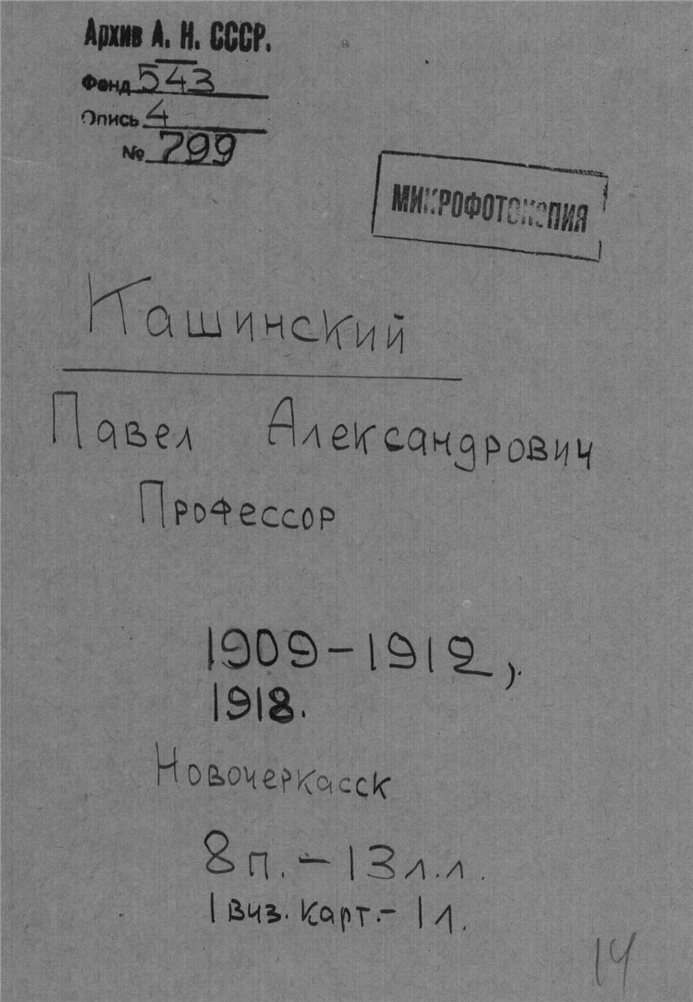 Архив А. Н. СССР.
Фонд 543
Опись 4
№ 799
МИКРОФОТОКОПИЯ
Кашинский
Павел Александрович
Профессор
1909-1912,
1918.
Новочеркасск
8 п. - 13 л.л.
1 виз. карт. - 1 л.
14